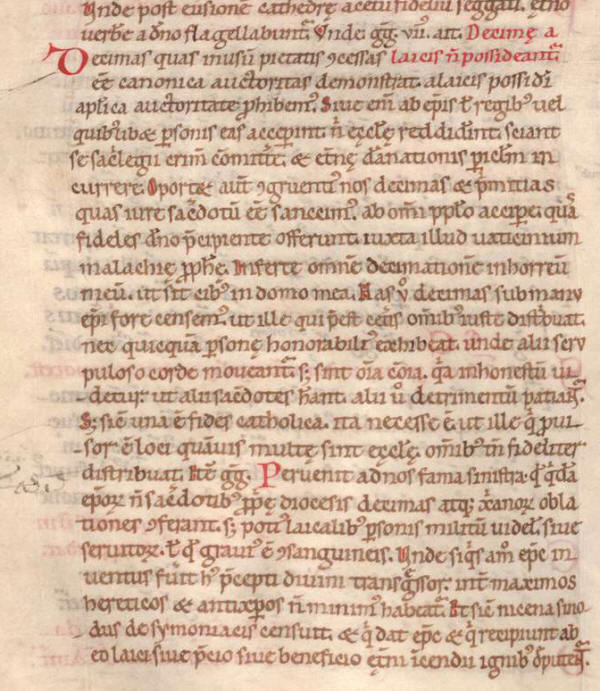 Unde post eiusionem cathedrę a cetu fidelium seggati. et no
uerbere a dn̄o flagellabunt᷑. Unde. gg̅. vii. ait. Decimę a
Decimas quas in usū pietatis ꝯcessas laicis n̄ possideant᷑
ee᷑ canonica auctoritas demonstrat. a laicis possidi᷑
aplica auctoritate ꝓhibem᷑. Siue eni᷑ ab ep̄is ł regib᷑ uel
quib᷑libet ꝑsonis eas acceperint. n̄ eccłę reddiderint. sciant
se sac̄legii crim̄ cōmitte᷑. & et᷑nę dānationis ꝑicłm in
currere. Oportet aut̄ ꝯgruenti᷑ nos decimas & p᷑mitias
quas iure sac᷑dotū ee᷑ sancim᷑. ab om̄i pp̄lo accipe᷑. quā
fideles dn̄o p᷑cipiente offerunt. iuxta illud uaticinium
malachię ꝓph̄ę. Inferte omnē decimationē in horreū
meū. ut sit cib᷑ in domo mea. Has ů decimas sub manu
ep̄i fore censem᷑. ut ille qui p᷑est cet᷑is om̄ib᷑ iuste distbuat.
nec quicquā ꝑsonę honorabili᷑ exhibeat. unde alii scru
puloso corde moueant᷑. s; sint oīa cōīa. q᷑a inhonestū ui
detur. ut alii sac᷑dotes hānt. alii ů detrimentū patiant᷑.
S; sic᷑ una ē fides catholica. ita necesse ē ut ille q᷑ ꝓui
sor ē loci quāuis multę sint eccłę. om̄ib᷑ tn̄ fideliter
distribuat. Itē gg̅. Peruenit ad nos fama sinistra. qd̄ q᷑dā
ep̄orꝝ n̄ sac᷑dotib᷑ ꝓprię diocesis decimas atq; xp̄ianorꝝ obla
tiones ꝯferant. s; poti᷑ laicalib᷑ ꝑsonis militū videl᷑. siue
seruitorꝝ. ł qd̄ graui᷑ ē ꝯsanguineis. Unde siq᷑s am̊ ep̄c in
uentus fuit᷑ h᷑ p᷑cepti diuini transg᷑ssor. int᷑ maximos
hereticos & antixp̄os n̄ minim᷑ habeat᷑. Et sic᷑ nicena sino
dus de symoniacis censuit. & q᷑ dat ep̄c & q᷑ recipiunt ab
eo laici siue p᷑cio siue beneficio et᷑ni incendii ignib᷑ deputent᷑.